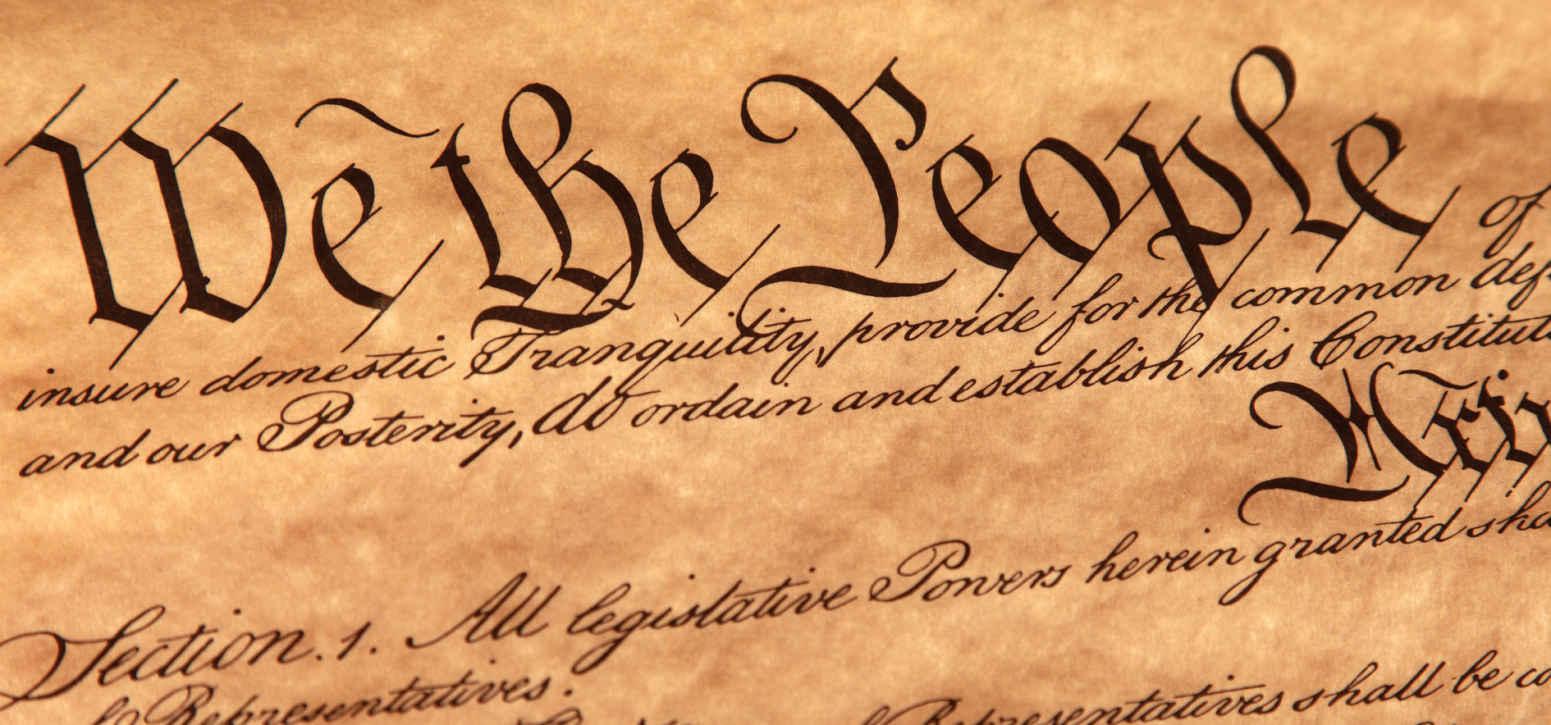 We the People of
insure domestic Tranquility, provide for the common def
and our Posterity, do ordain and establish this Constitut
Artic
Section. 1. All legislative Powers herein granted sha
of Representatives.
of Representatives shall be co